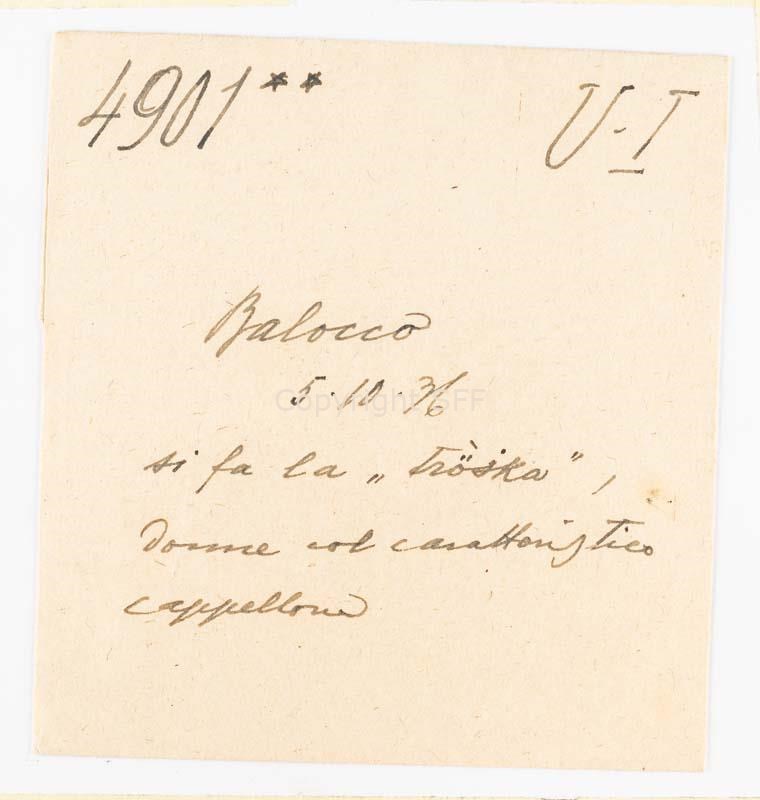 4901** U-I
Balocco
5.10.36
Copyright SFF
si fa la „tröska",
donne col caratteristico
cappellone